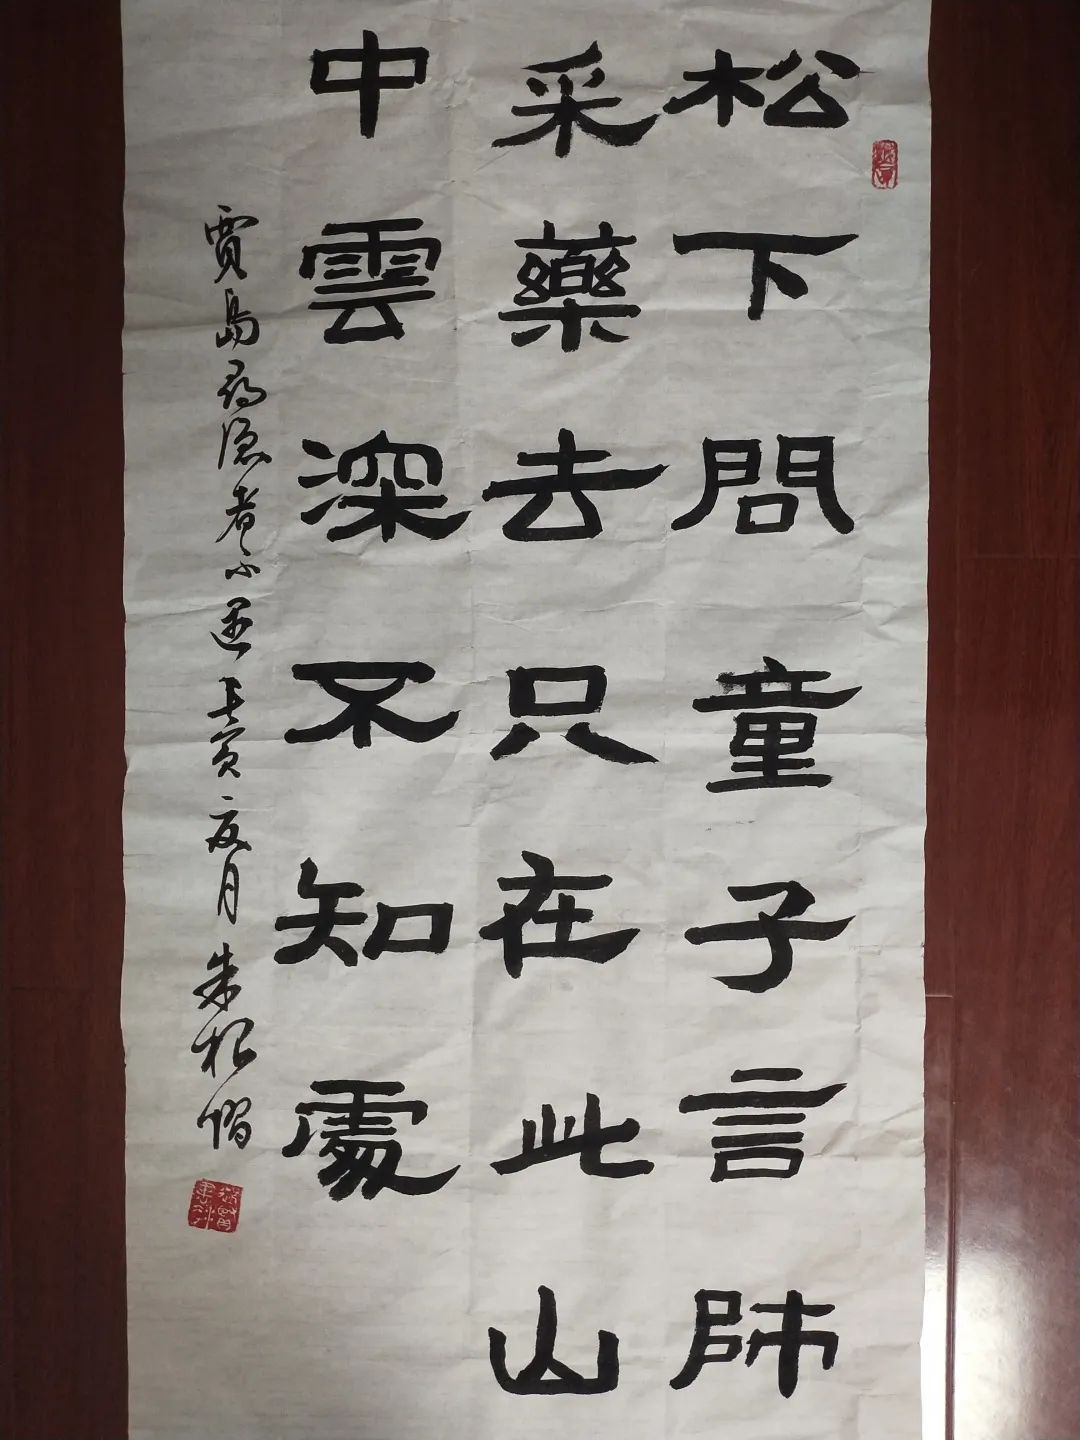 松下問童子言師
采藥去只在此山
中雲深不知處
賈島尋隱者不遇 壬寅夏月 朱根